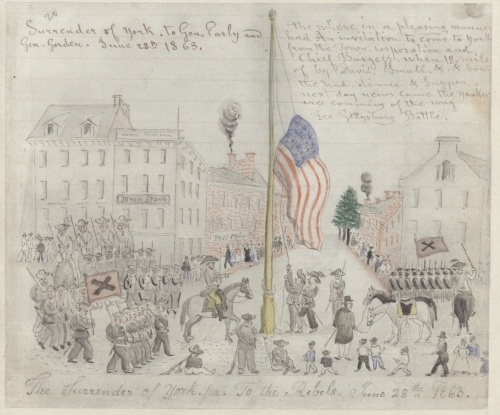 Surrender of York. to Gen. Early and
Gen. Gorden. June 28th 1863.
the where in a pleasing manner
had An invitation to come to York
from the Town Corporation and
Chief Burgess, when 18 mile
of by David Small, &
the Yard dinner & Supper.
next day news Came the Yankees
are comming of the way
See Gettysburg Battle.
The Surrender of York. pa. To the Rebels. June 28th 1863.